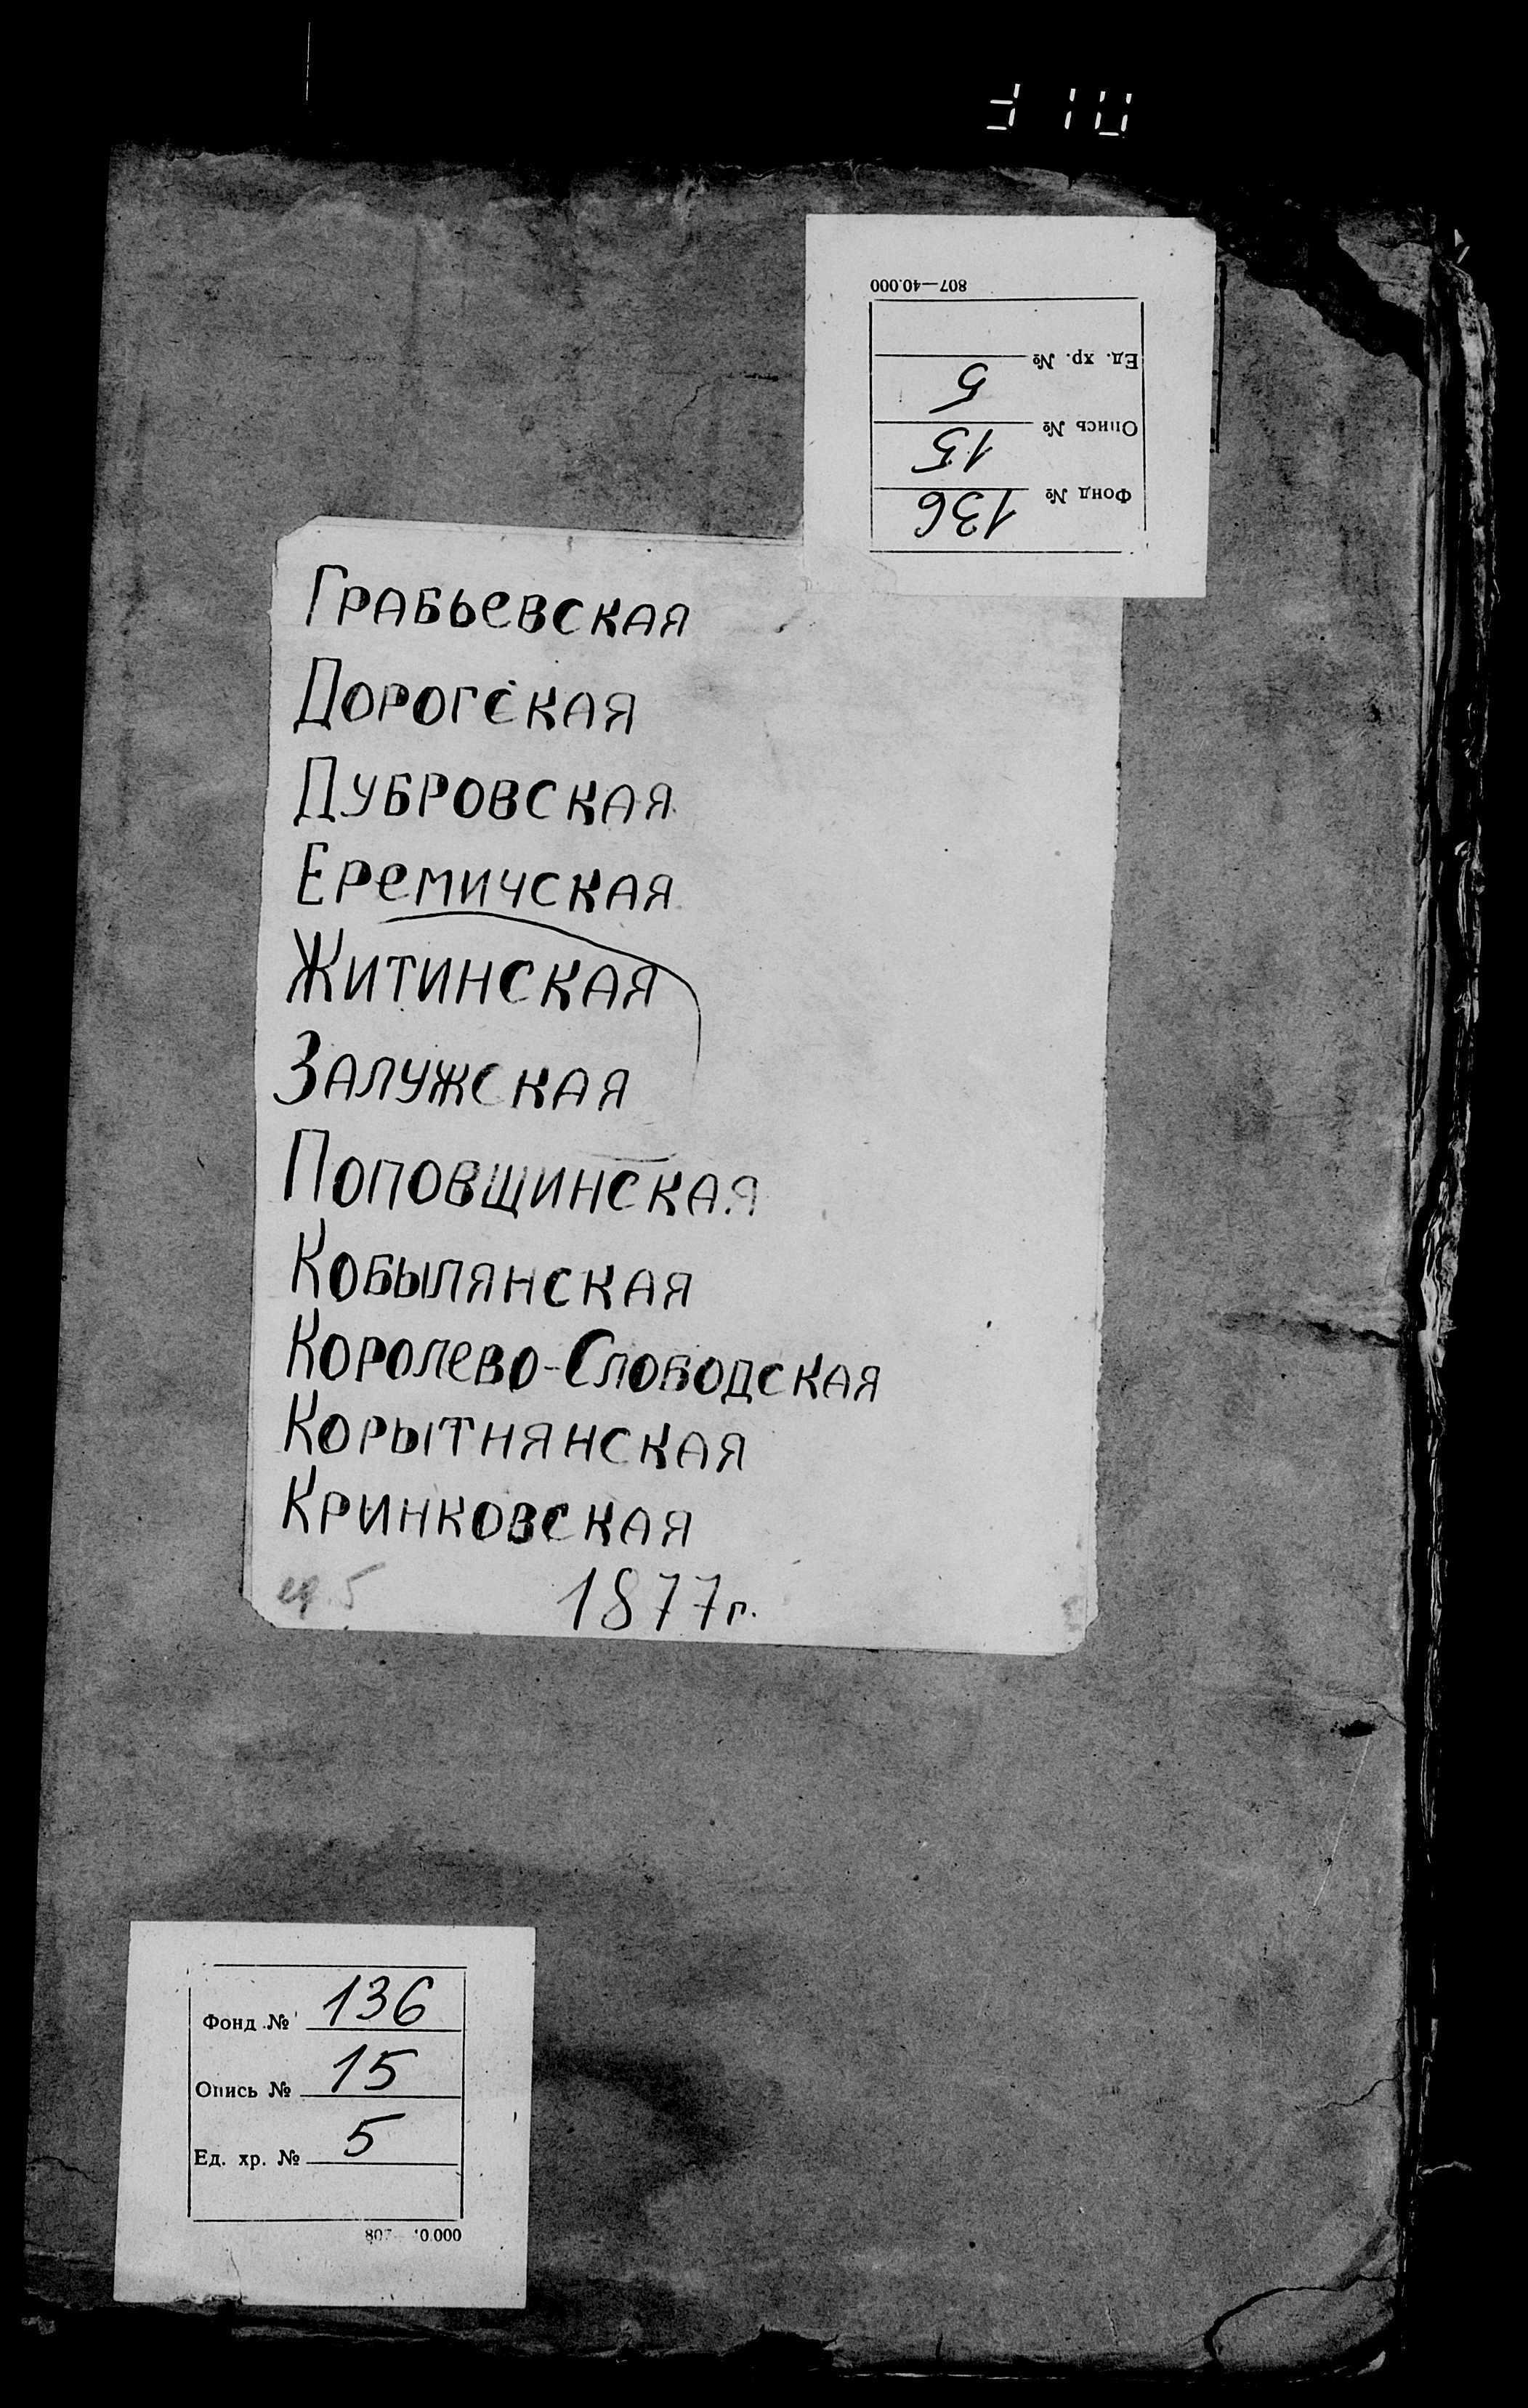 807—40.000
Ед. хр. № 5
Опись № 15
Фонд № 136
Грабьевская
Дорогская
Дубровская
Еремичская
Житинская
Залужская
Поповщинская
Кобылянская
Королево-Слободская
Корытнянская
Кринковская
1877г.
Фонд № 136
Опись № 15
Ед. хр. № 5